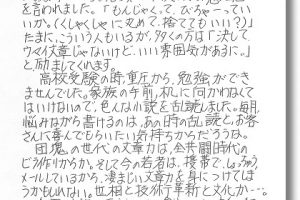 を言われました。「もんじゃくって、ひちゃーってい
いか。(くしゃくしゃに丸めて、捨ててもいい?)」
たまに、こういう人もいるが、多くの方は「決して
ウマイ文章じゃないけど…いい雰囲気があるに。」
と励ましてくれます。
高校受験の時、重圧から、勉強ができ
ませんでした。家族の手前、机に向かわなくて
はいけないので、色んな小説を乱読しました。毎月、
悩みながら書けるのは、あの時の乱読と、お客
さんに喜んでもらいたい気持ちからだろうな。
団塊の世代の文章力は、全共闘時代の
ビラ作りからか。そして今の若者は、携帯で、しょっちゅう
メールしているから、凄まじい文章力を身につけてしま
うかもしれない。世相と技術革新と文化か…。